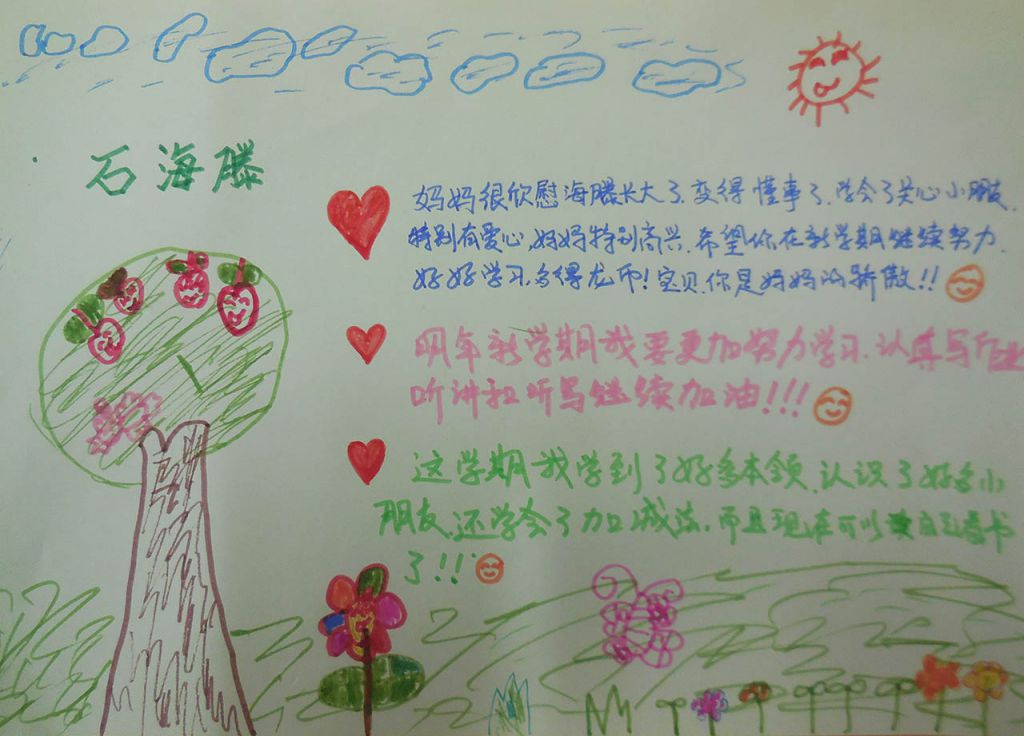 石海滕
妈妈很欣慰海滕长大了,变得懂事了,学会了关心小朋友,
特别有爱心,妈妈特别高兴,希望你在新学期继续努力,
好好学习,多得龙币!宝贝,你是妈妈的骄傲!!
明年新学期我要更加努力学习,认真写作业
听讲和听写继续加油!!!
这学期我学到了好多本领,认识了好多小
朋友,还学会了加减法,而且现在可以读自己看书
了!!